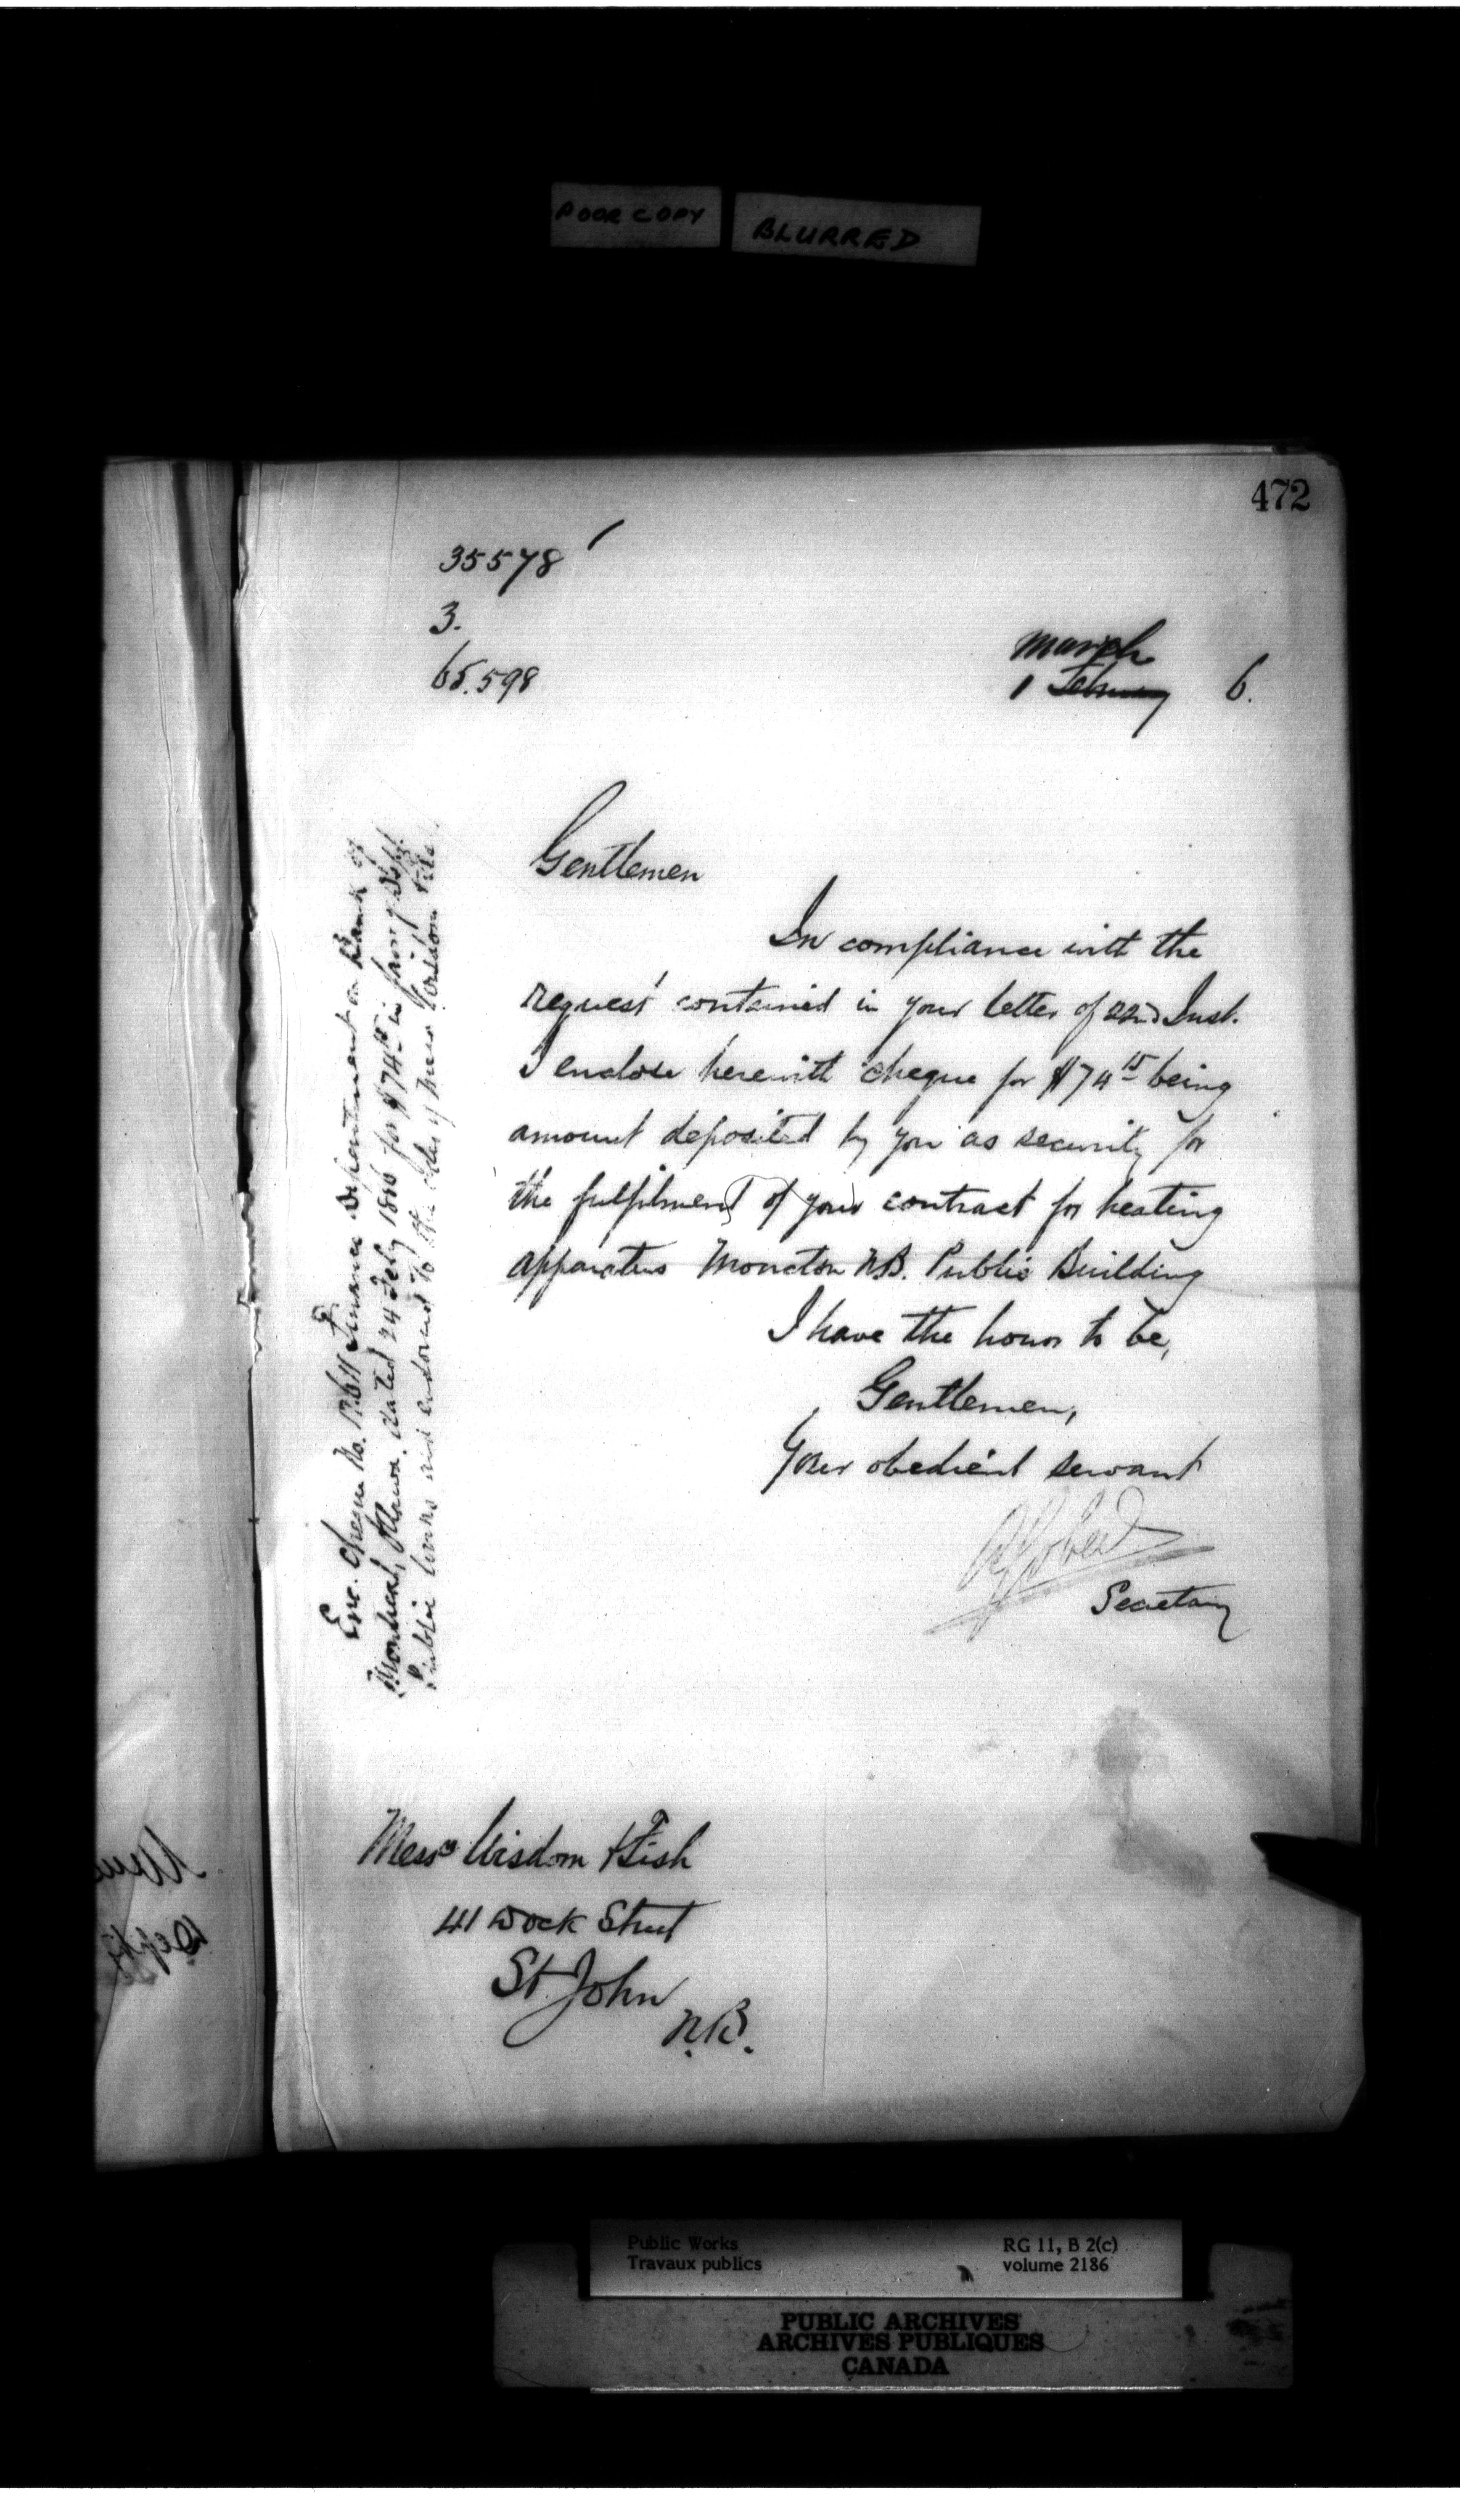 POOR COPY BLURRED
472
35578
3.
65.598
March
1 February 6.
Gentlemen
In compliance with the
request contained in your letter of 22nd Inst.
I enclose herewith cheque for $74 15 being
amount deposited by you as security for
the fulfilment of your contract for heating
apparatus Moncton N.B. Public Building
I have the honor to be,
Gentlemen,
Your obedient servant
AGobeil
Secretary
Enc. Cheque No. Finance Department on Bank of
Montreal, Ottawa, dated 24 Feby 1886 for $74 15 in favor of Dept.
Public Works and endorsed to the order of Messrs Wisdom & Fish
Messrs Wisdom & Fish
41 Dock Street
St. John
N.B.
Public Works RG 11, B 2(c)
Travaux publics volume 2186
PUBLIC ARCHIVES
ARCHIVES PUBLIQUES
CANADA